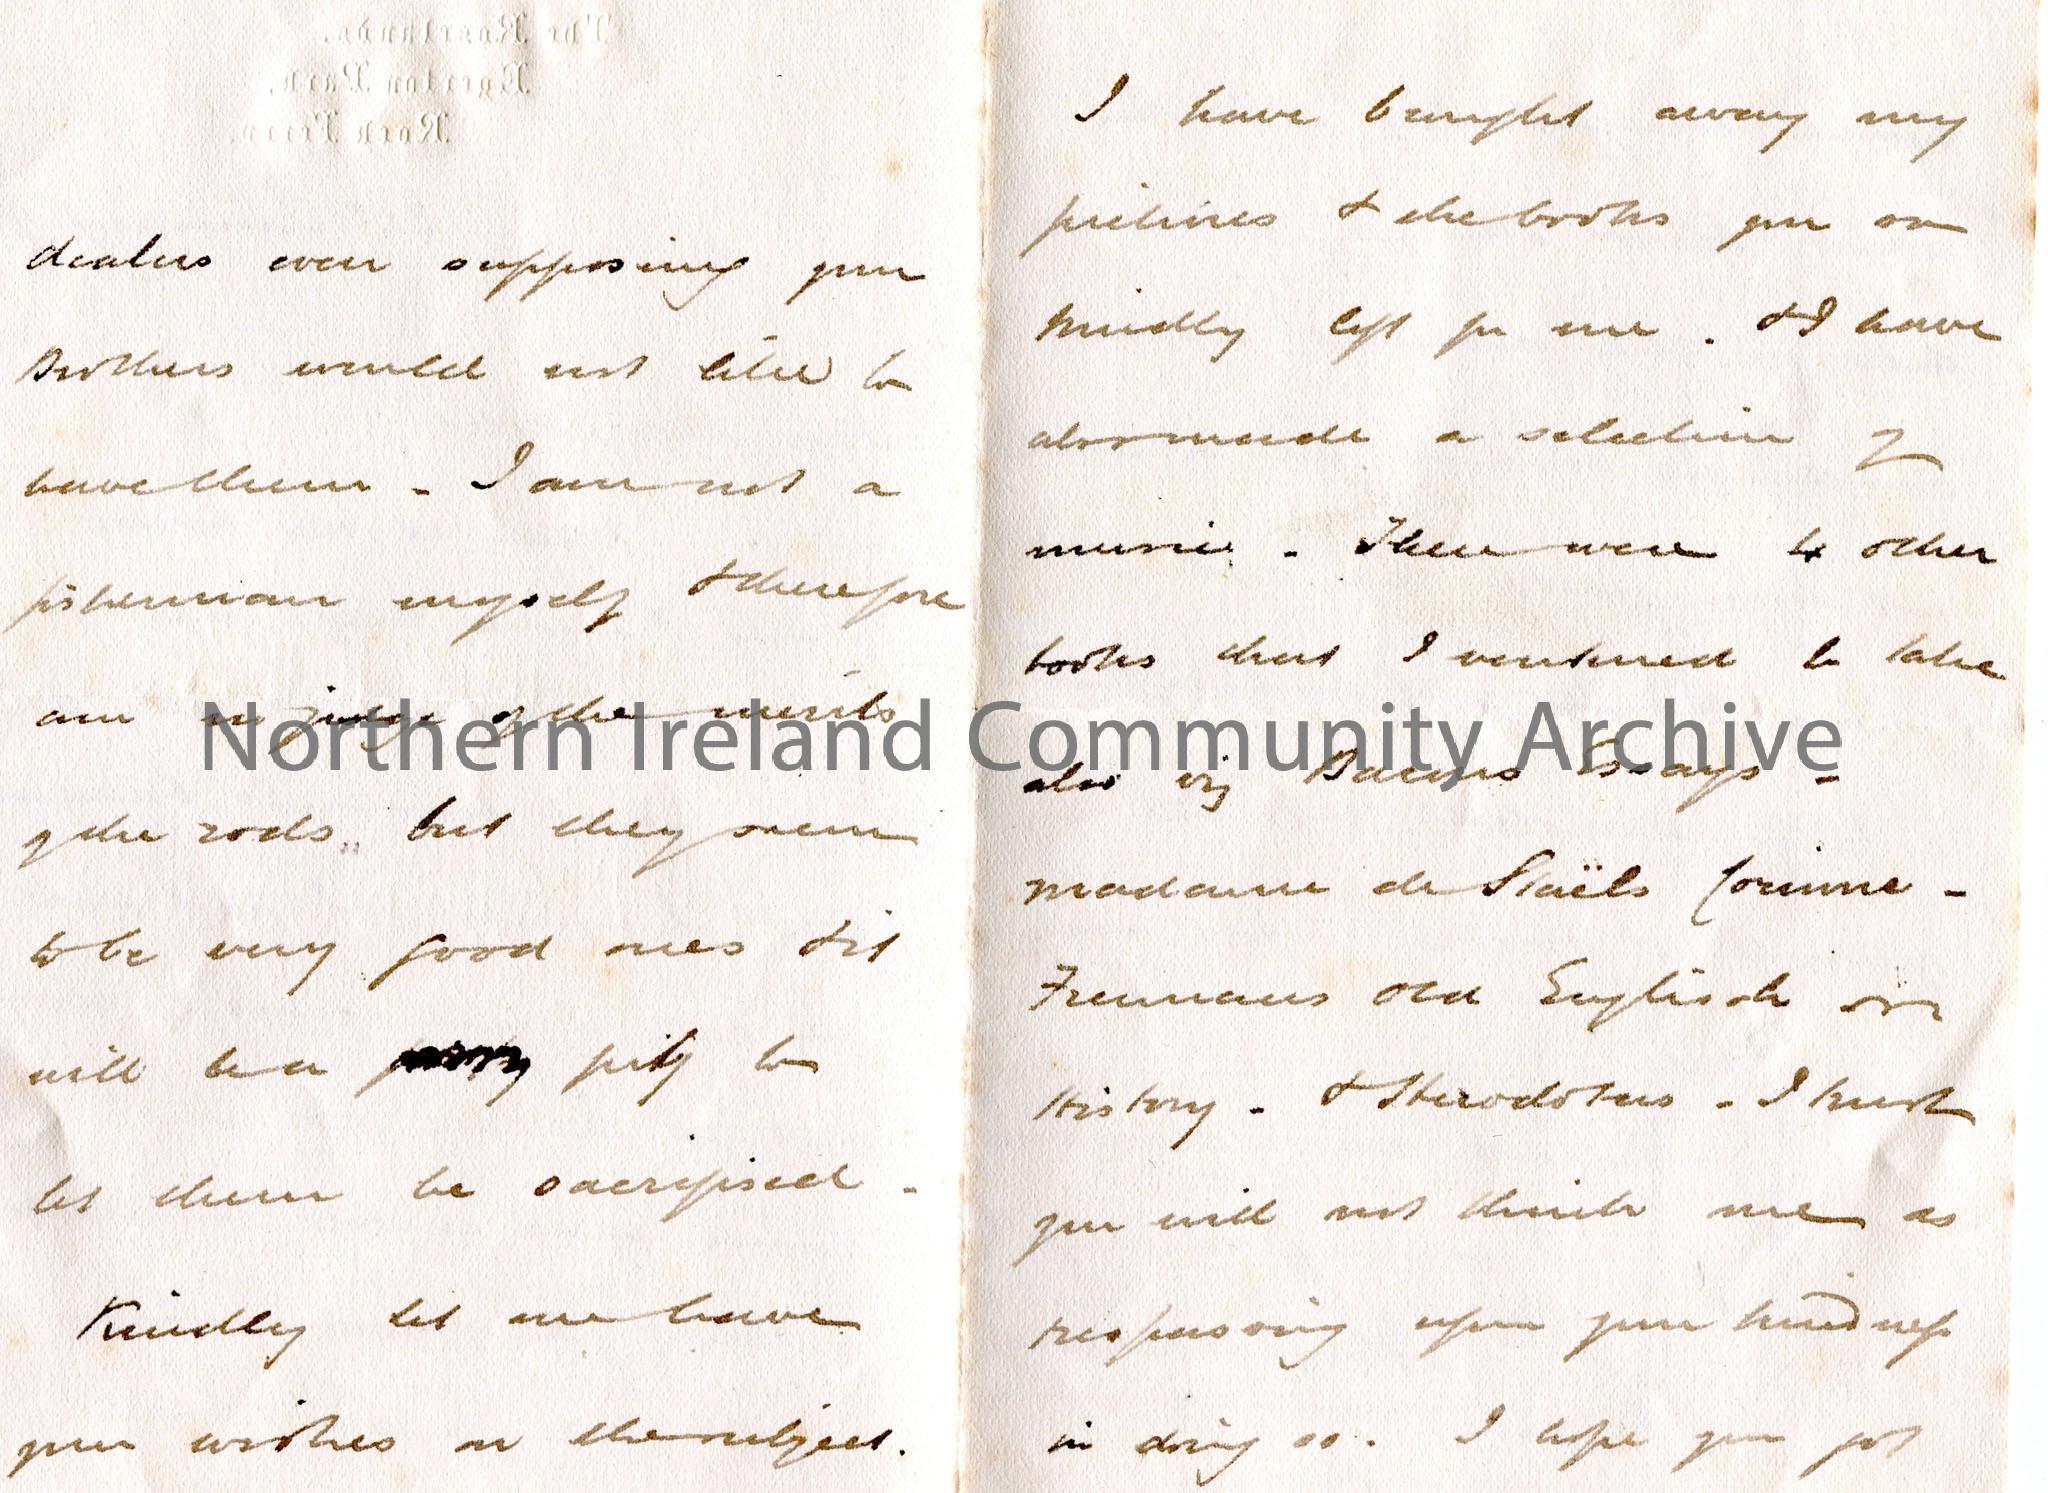 The Roselands.
Egerton Park,
Rock Ferry.
dealers even supposing your
Brothers would not like to
have them - I am not a
fisherman myself & therefore
am no judge of the merits
of the rods, but they seem
to be very good ones & it
will be a pity to
let them be sacrificed -
Kindly let me have
your wishes on the subject.
I have brought away my
pictures & the books you so
kindly left for me. & I have
also made a selection of
music - There were 4 other
books that I ventured to take
also viz Bacons Essays -
Madame de Staëls Corinne -
Freemans Old English
History - & Herodotus - I trust
you will not think me as
trespassing upon your kindness
in doing so. I hope you got
Northern Ireland Community Archive